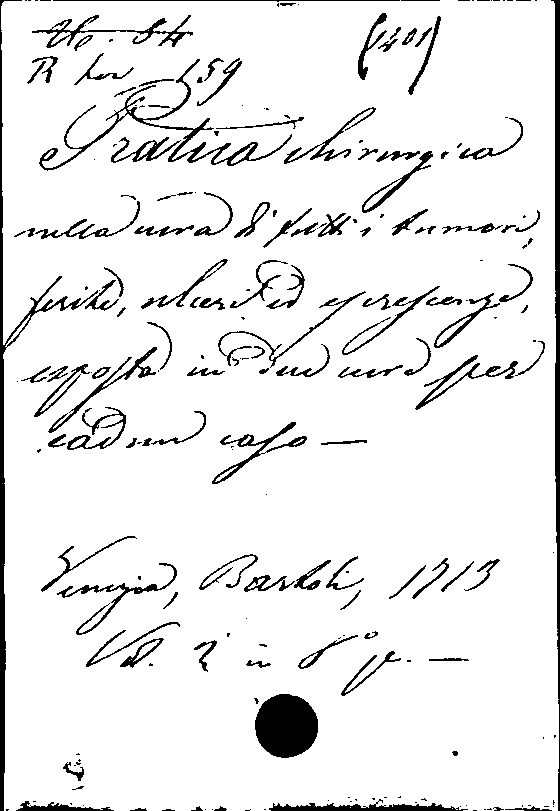 (1401)
R 159
Pratica chirurgica
nella cura di tutti i tumori,
ferite, ulceri ed escrescenze,
esposta in due cure per
cadun caso —
Venezia, Bartoli, 1713
Vol. 2 in 8° p. —